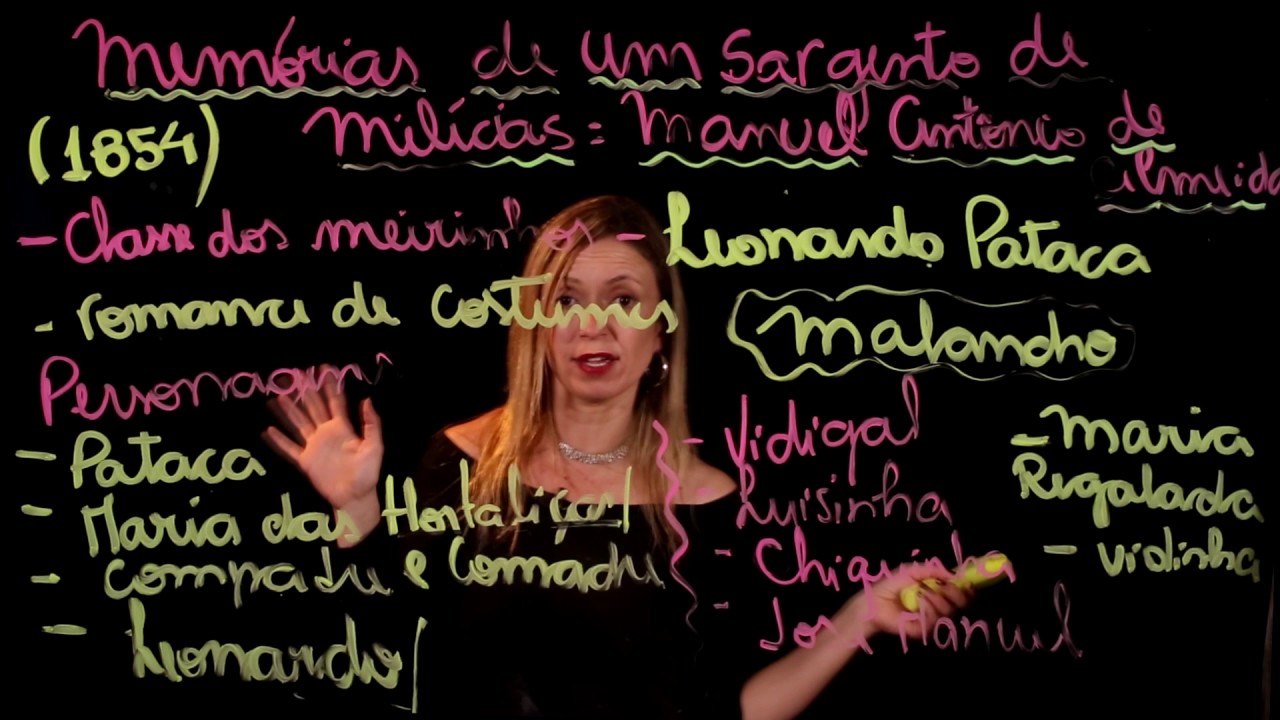 Memórias de um Sargento de
(1854) Milícias: Manuel Antônio de
Almeida
- Classe dos meirinhos - Leonardo Pataca
- romance de costumes
malandro
Personagens
- Pataca
- Maria das Hortaliças
- compadre e Comadre
- Leonardo
- Vidigal
- Luisinha
- Chiquinha
- José Manuel
- Maria
Regalada
- vidinha